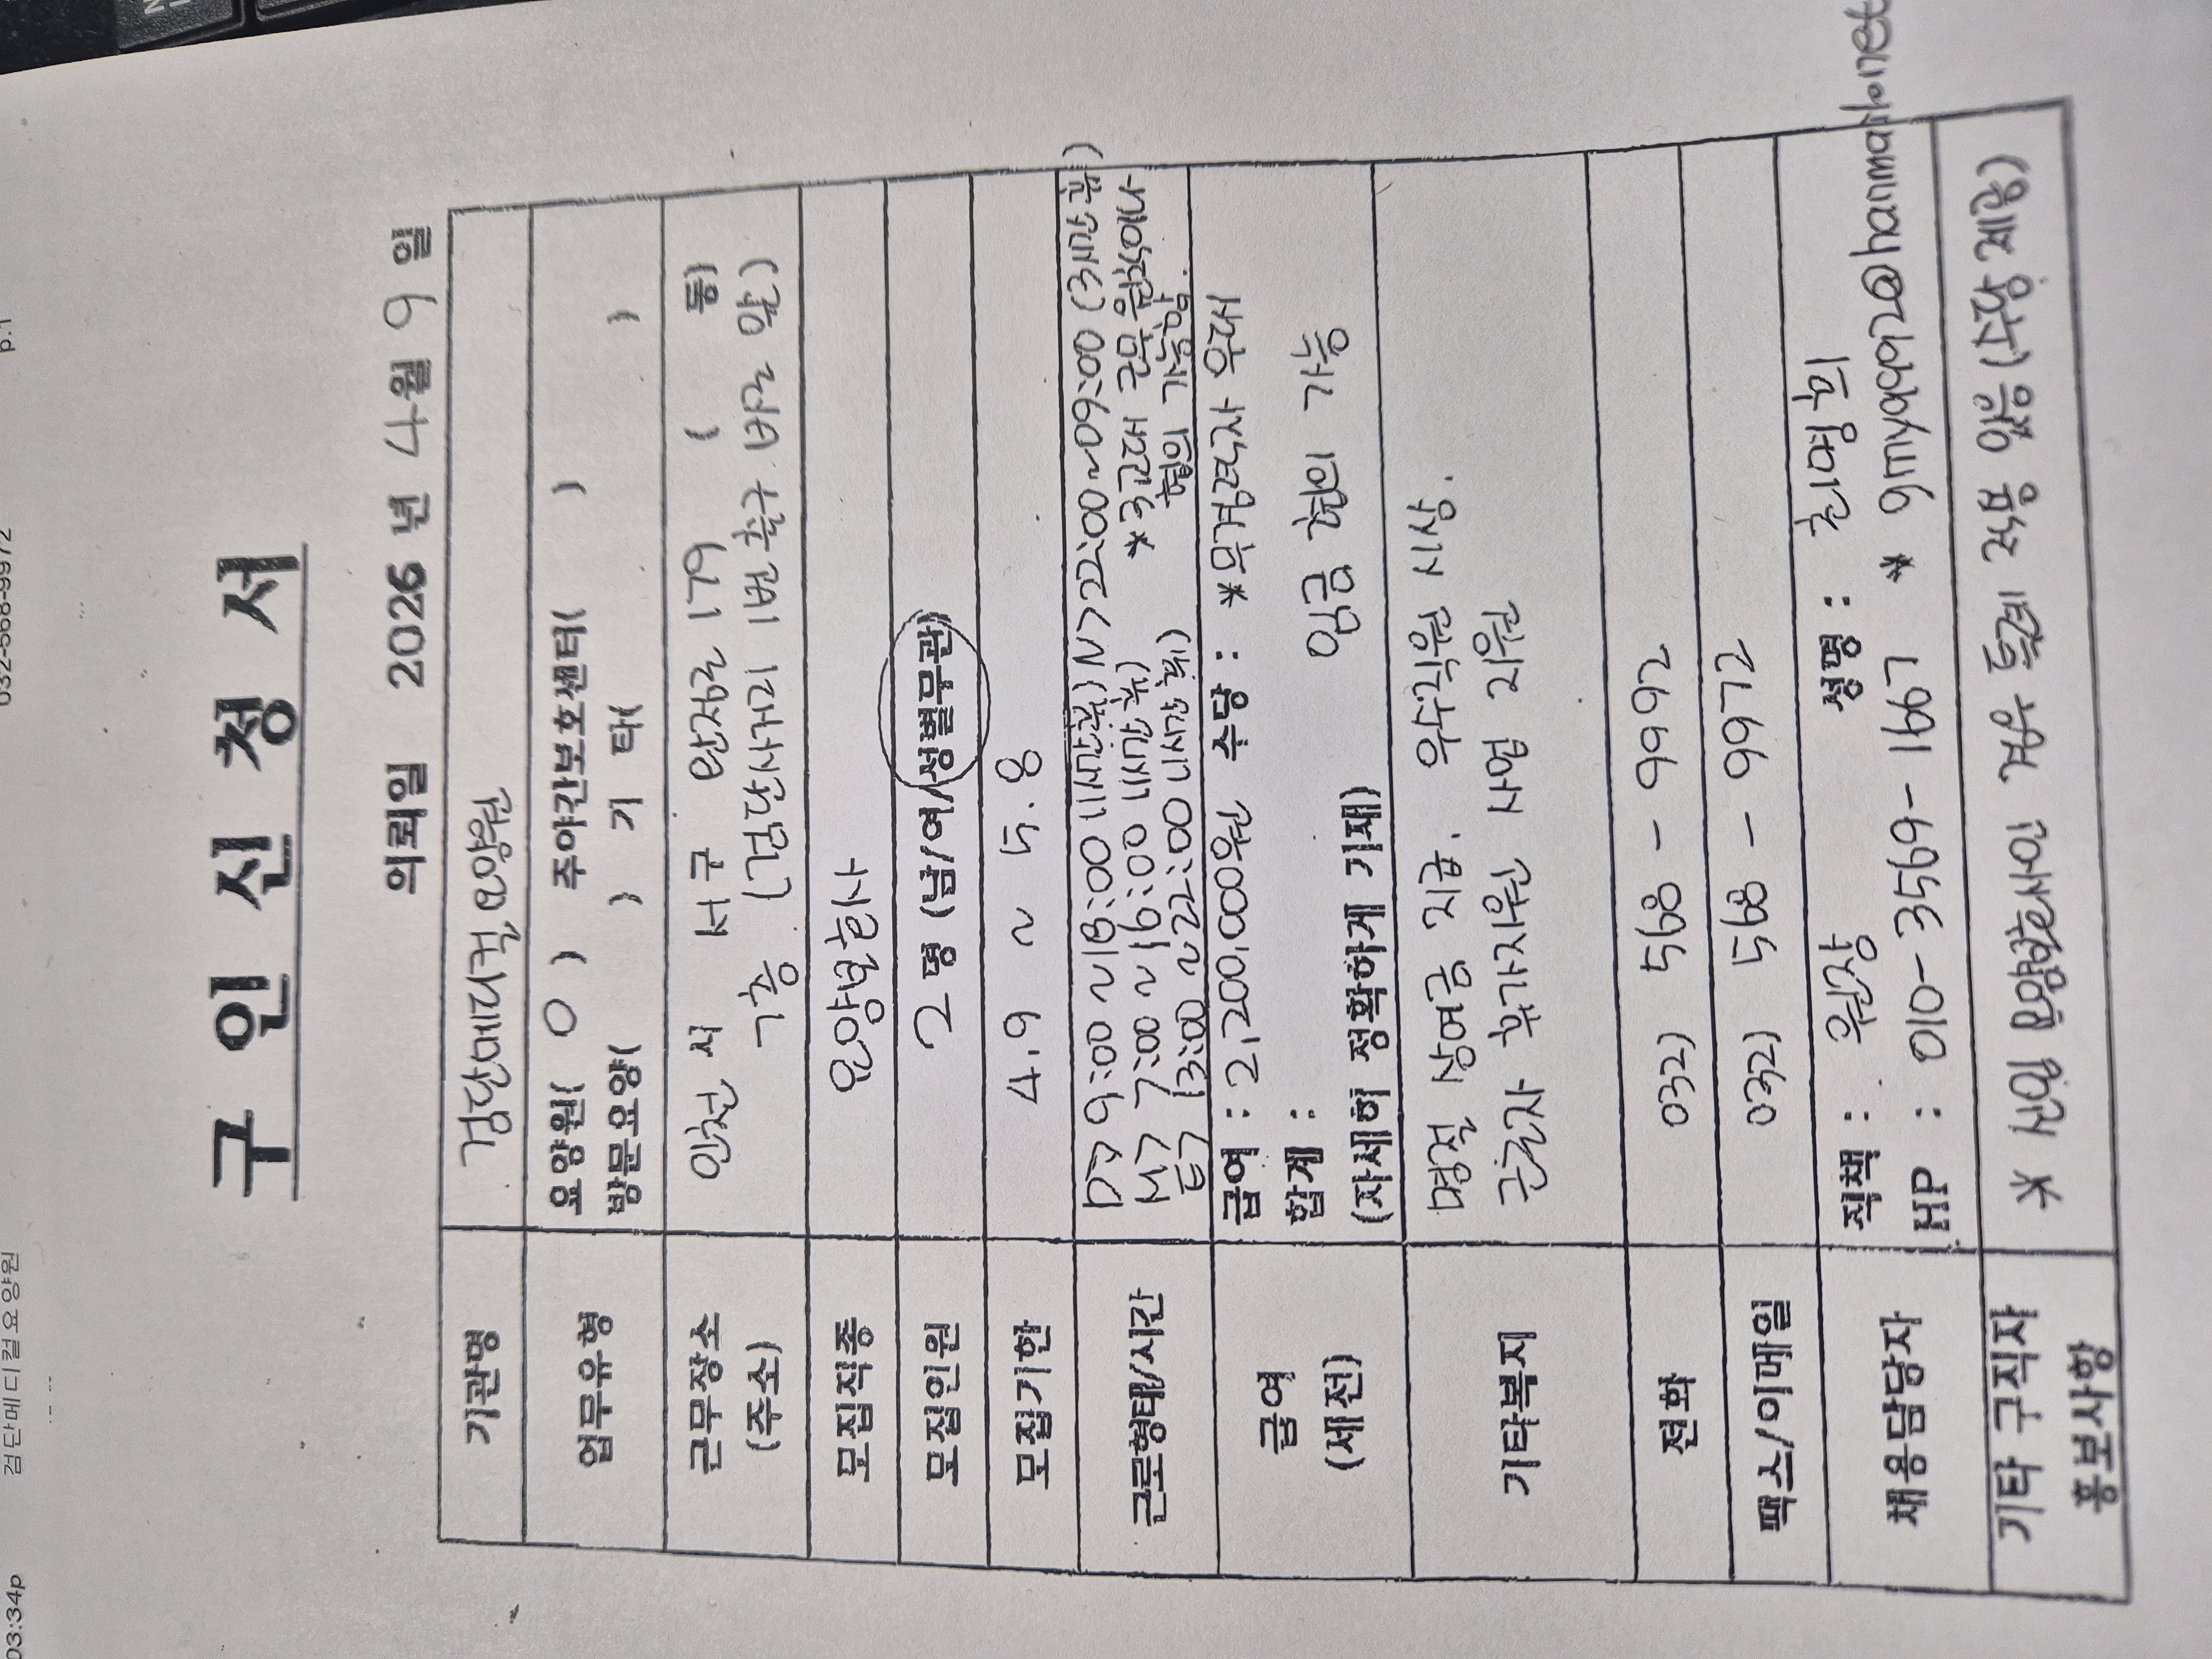 03:34p 검단메디컬요양원 032-568-9972 p.1
구 인 신 청 서
의뢰일 2026 년 4월 9 일
기관명 검단메디컬요양원
업무유형 요양원( O ) 주야간보호센터( )
방문요양( ) 기 타( )
근무장소 (주소) 인천 시 서 구 완정로 179 ( 동)
7층 (검단사거리 1번 출구 바로 앞)
모집직종 요양보호사
모집인원 2 명 (남/여/성별무관)
모집기한 4.9 ~ 5.8
근로형태/시간 D> 9:00 ~ 18:00 (1시간 휴) N> 22:00~09:00 (3시간 휴)
M> 7:00 ~ 16:00 (1시간 휴) *3교대 근무 원칙이나
E> 13:00 ~ 22:00 (1시간 휴) 협의 가능함.
급여 (세전) 급여 : 2,200,000원 수당 : *무경력자 우대
합계 : 임금 협의 가능
(자세히 정확하게 기재)
기타복지 명절 상여금 지급. 우수직원 시상.
근로자 휴가지원 사업 지원
전화 032) 568 - 9992
팩스/이메일 032) 568 - 9972
채용담당자 직책 : 원장 성명 :
HP : 010-3569-1667 *
기타 구직자 홍보사항 *